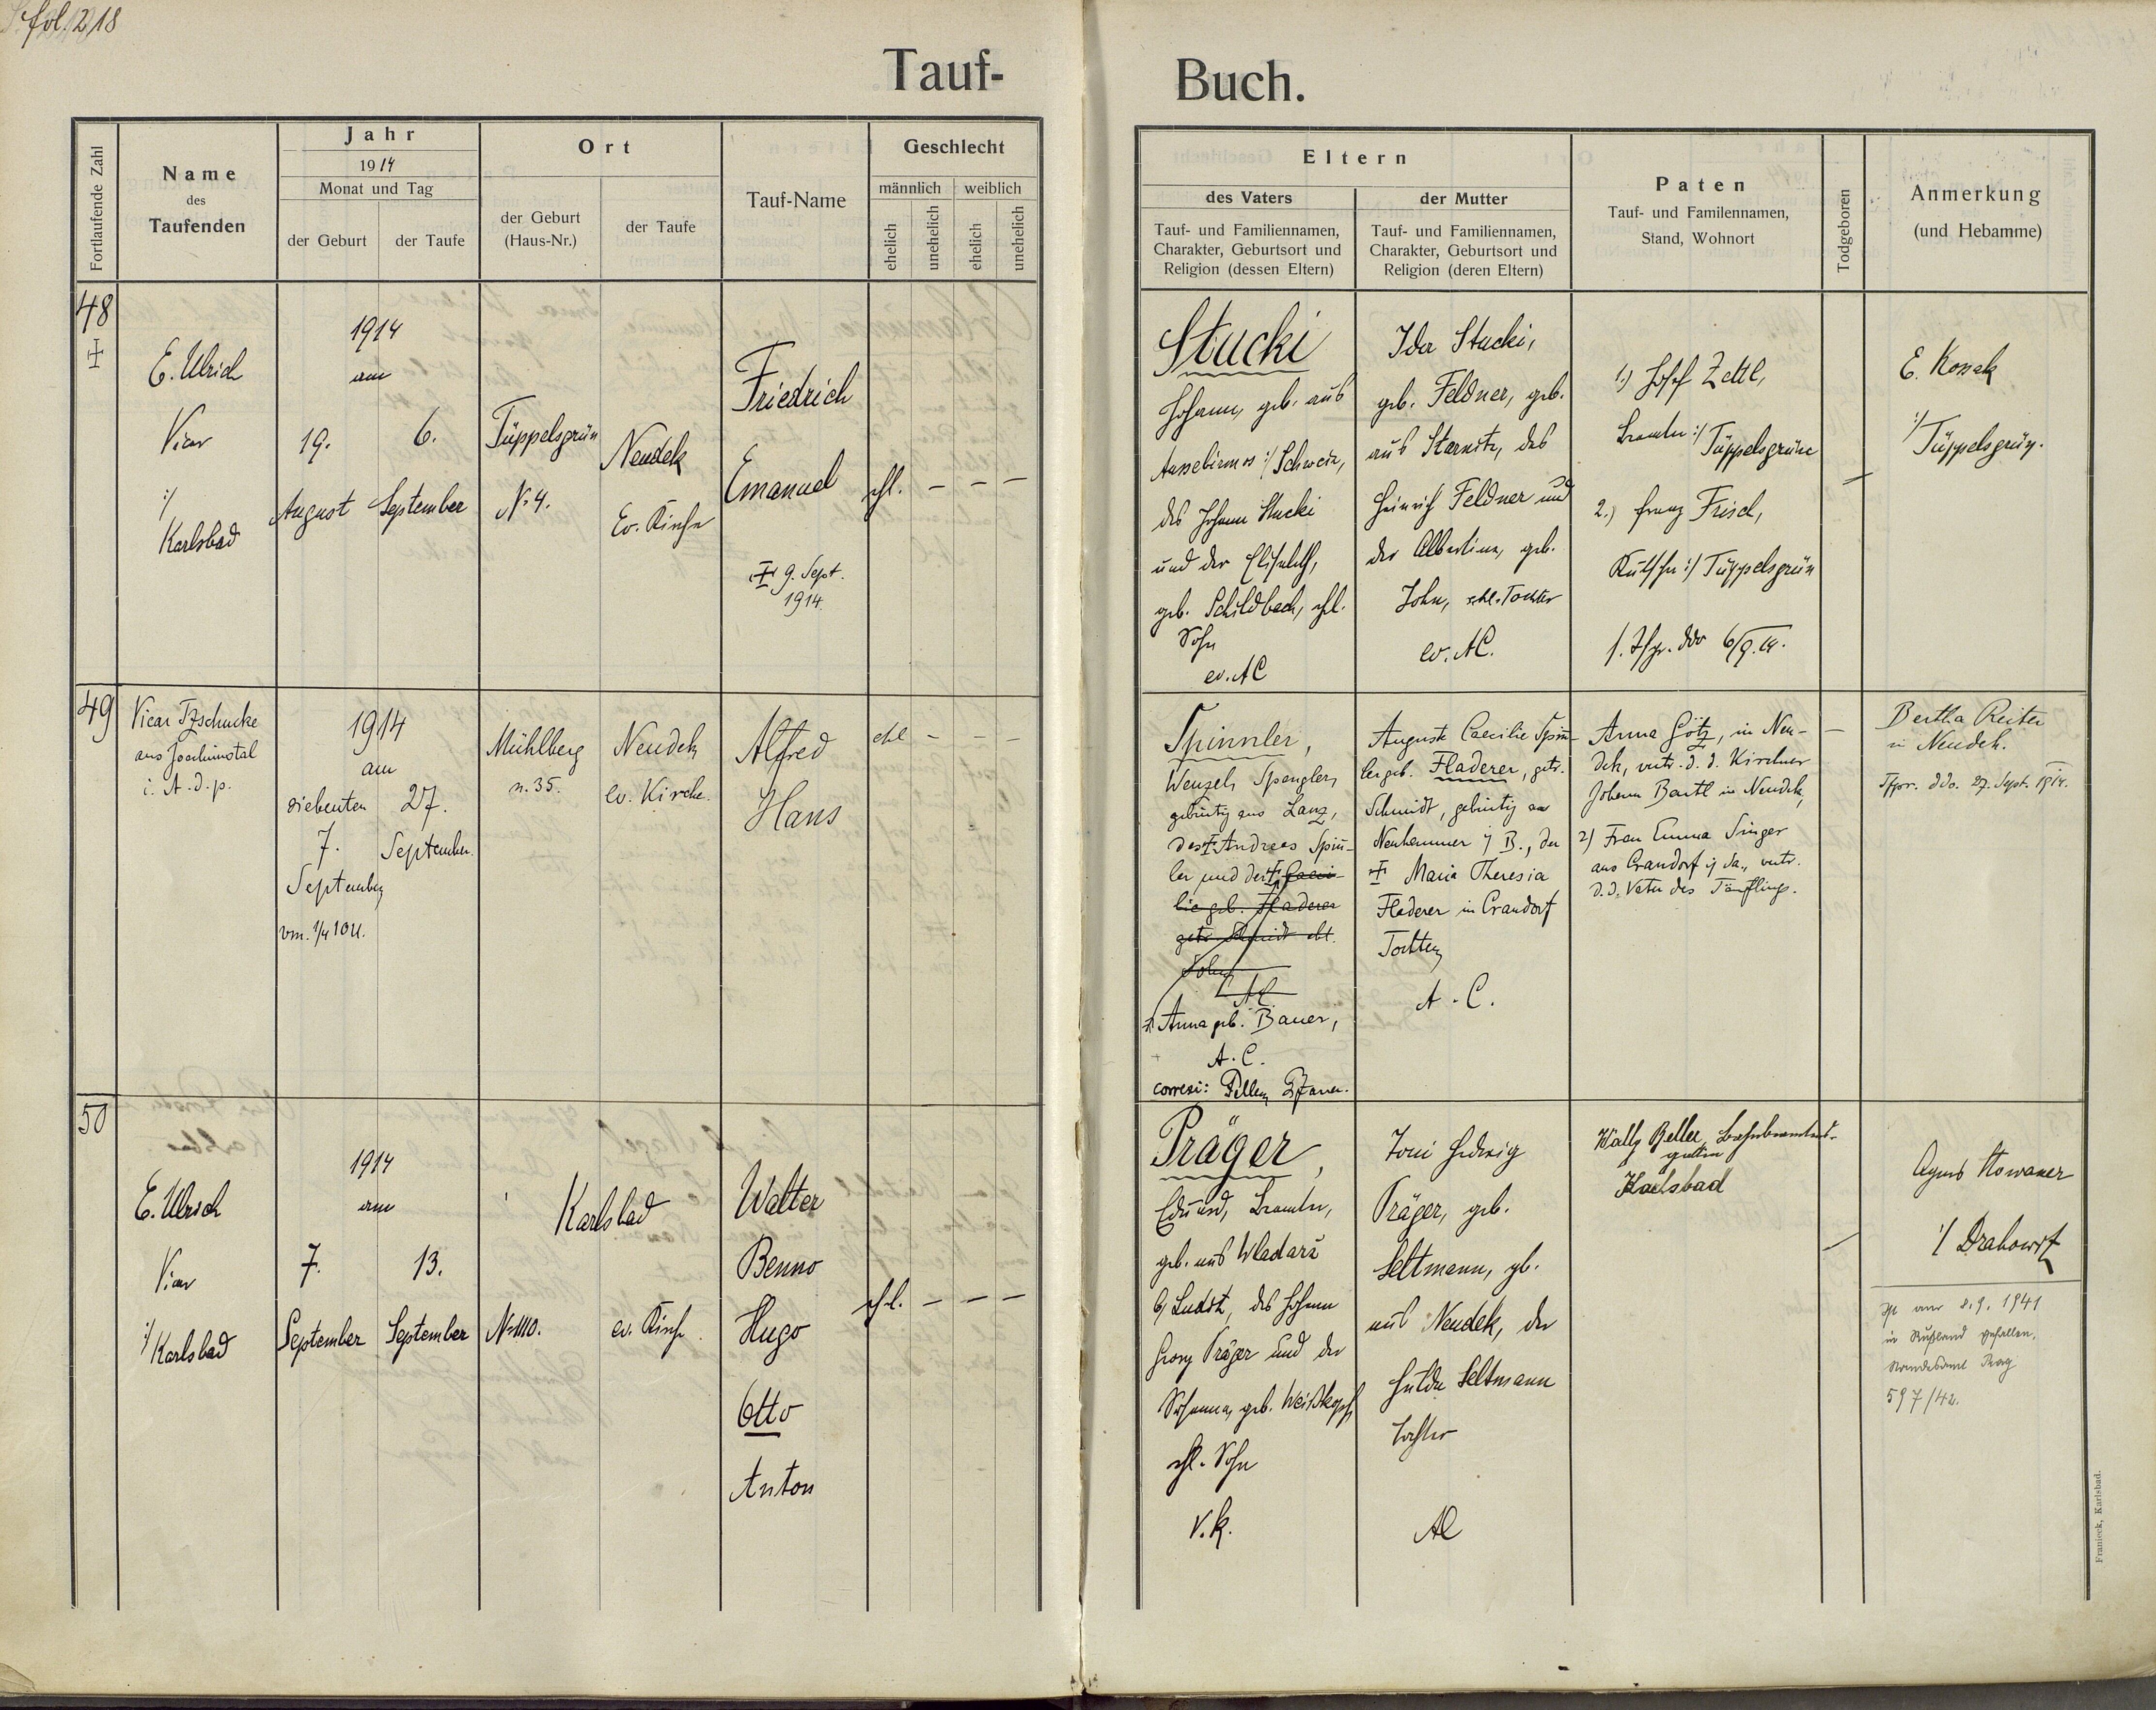 fol. 218
Tauf-
Buch.
Fortlaufende Zahl
Name
des
Taufenden
Jahr
1914
Monat und Tag
der Geburt
der Taufe
Ort
der Geburt
(Haus-Nr.)
der Taufe
Tauf-Name
Geschlecht
männlich
weiblich
ehelich
unehelich
ehelich
unehelich
Eltern
des Vaters
Tauf- und Familiennamen,
Charakter, Geburtsort und
Religion (dessen Eltern)
der Mutter
Tauf- und Familiennamen,
Charakter, Geburtsort und
Religion (deren Eltern)
Paten
Tauf- und Familennamen,
Stand, Wohnort
Todgeboren
Anmerkung
(und Hebamme)
48
E. Ulrich
Vicar
:/
Karlsbad
1914
am
19.
August
6.
September
Tüppelsgrün
N. 4.
Neudek
Ev. Kirche
Friedrich
Emanuel
9. Sept.
1914.
ehl. - - -
Stucki
Johann, geb. aus
:/ Schweiz,
des Johann Stucki
und der Elisabeth,
geb. Schildbach, ehl.
Sohn
ev. AC
Ida Stucki,
geb. Feldner, geb.
aus Sternitz, des
Heinrich Feldner und
der Albertine, geb.
John, ehl. Tochter
ev. AC.
1.) Josef Zettl,
Beamter :/ Tüppelsgrün
2.) Franz Frisch,
Kutscher :/ Tüppelsgrün
ddo 6/9.14.
E. Kossak
:/ Tüppelsgrün.
49
Vicar Tzschucke
aus Joachimstal
i. A. d. p.
1914
am
siebenten
7.
September
vm. 1/4 10 U.
27.
September.
Mühlberg
n. 35.
Neudek
ev. Kirche.
Alfred
Hans
ehl - - -
Spinnler,
Wenzel, Spengler,
gebürtig aus Lanz,
des Andreas Spin̄-
ler und der Caeci-
lie geb. Fladerer
getr. Schmidt ehl.
Sohn
AC.
Anna geb. Bauer,
A. C.
correxi:
Auguste Caecilie Spin̄-
ler geb. Fladerer, getr.
Schmidt, gebürtig aus
Neuhammer i/ B., der
Maria Theresia
Fladerer in Crandorf
Tochter,
A. C.
Anna Götz, in Neu-
dek, vertr. d. d. Kirchner
Johann Bartl in Neudek,
2) Frau Emma Singer
aus Crandorf i/ Sa., vertr.
d. d. Vater des Täuflings.
Bertha Reiter
in Neudek.
ddo. 27. Sept. 1914.
50
E. Ulrich
Vicar
:/ Karlsbad
1914
am
7.
September
13.
September
Karlsbad
N. 1110.
ev. Kirche
Walter
Benno
Hugo
Otto
Anton
ehl. - - -
Präger,
Eduard, Beamter,
geb. aus Wladarž
b/ Luditz, des Johann
Georg Präger und der
Susanna, geb. Weißkopf,
ehl. Sohn
r. k.
Toni Hedwig
Präger, geb.
Seltmann, geb.
aus Neudek, der
Hulda Seltmann
Tochter
AC
Wally Beller, Bahnbeamtens-
gattin
Karlsbad
Agnes Nowaner
:/ Drahowitz
Ist am 8.9.1941
in Rußland gefallen.
Standesamt Prag
597/42.
Franieck, Karlsbad.